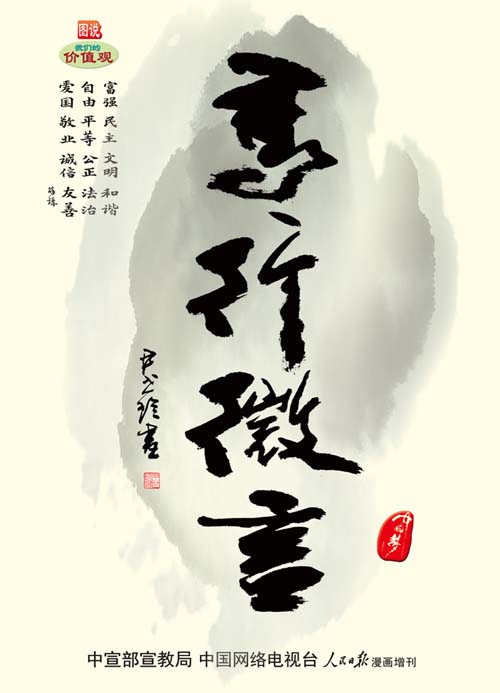 图说
我们的
价值观
富强 民主 文明 和谐
自由 平等 公正 法治
爱国 敬业 诚信 友善
高行微言
中国梦
中宣部宣教局 中国网络电视台 人民日报 漫画增刊